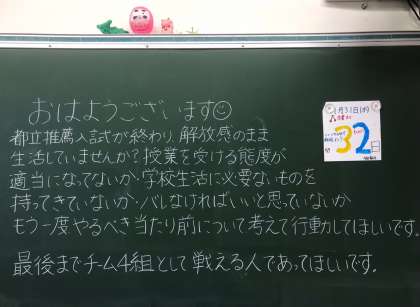 おはようございます☺
都立推薦入試が終わり、解放感のまま
生活していませんか？授業を受ける態度が
適当になってないか・学校生活に必要ないものを
持ってきていないか・バレなければいいと思っていないか
もう一度やるべき当たり前について考えて行動してほしいです。
最後までチーム4組として戦える人であってほしいです。
1月31日(水)
32
日